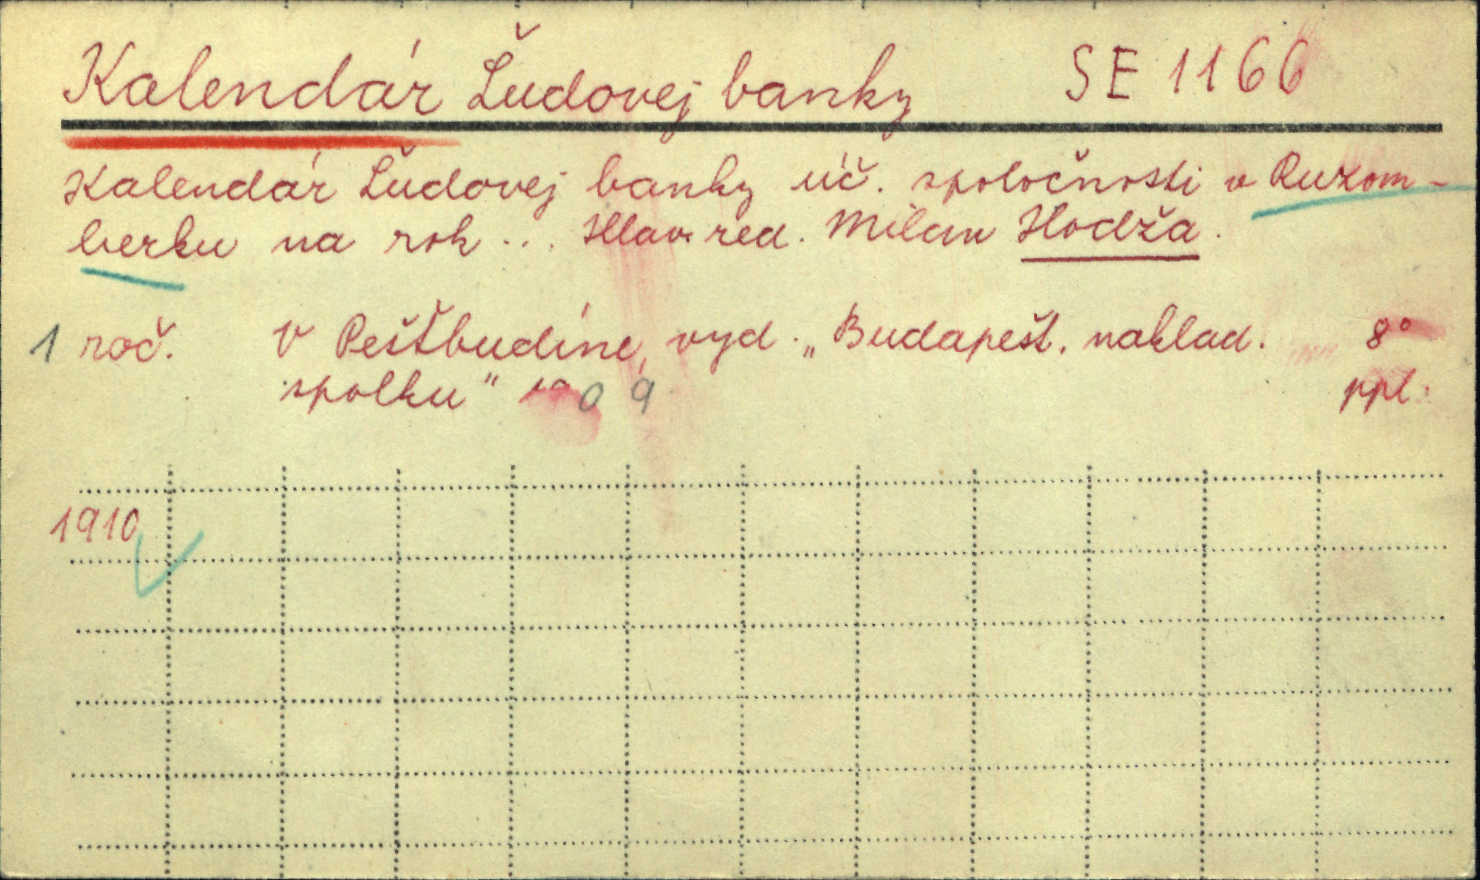 Kalendár Ľudovej banky SE 1166
Kalendár Ľudovej banky úč. spoločnosti v Ružom-
berku na rok ... Hlav. red. Milan Hodža.
1 roč. V Pešťbudíne, vyd. „Budapešť. naklad. 8°
spolku" 1909 ppl.
1910